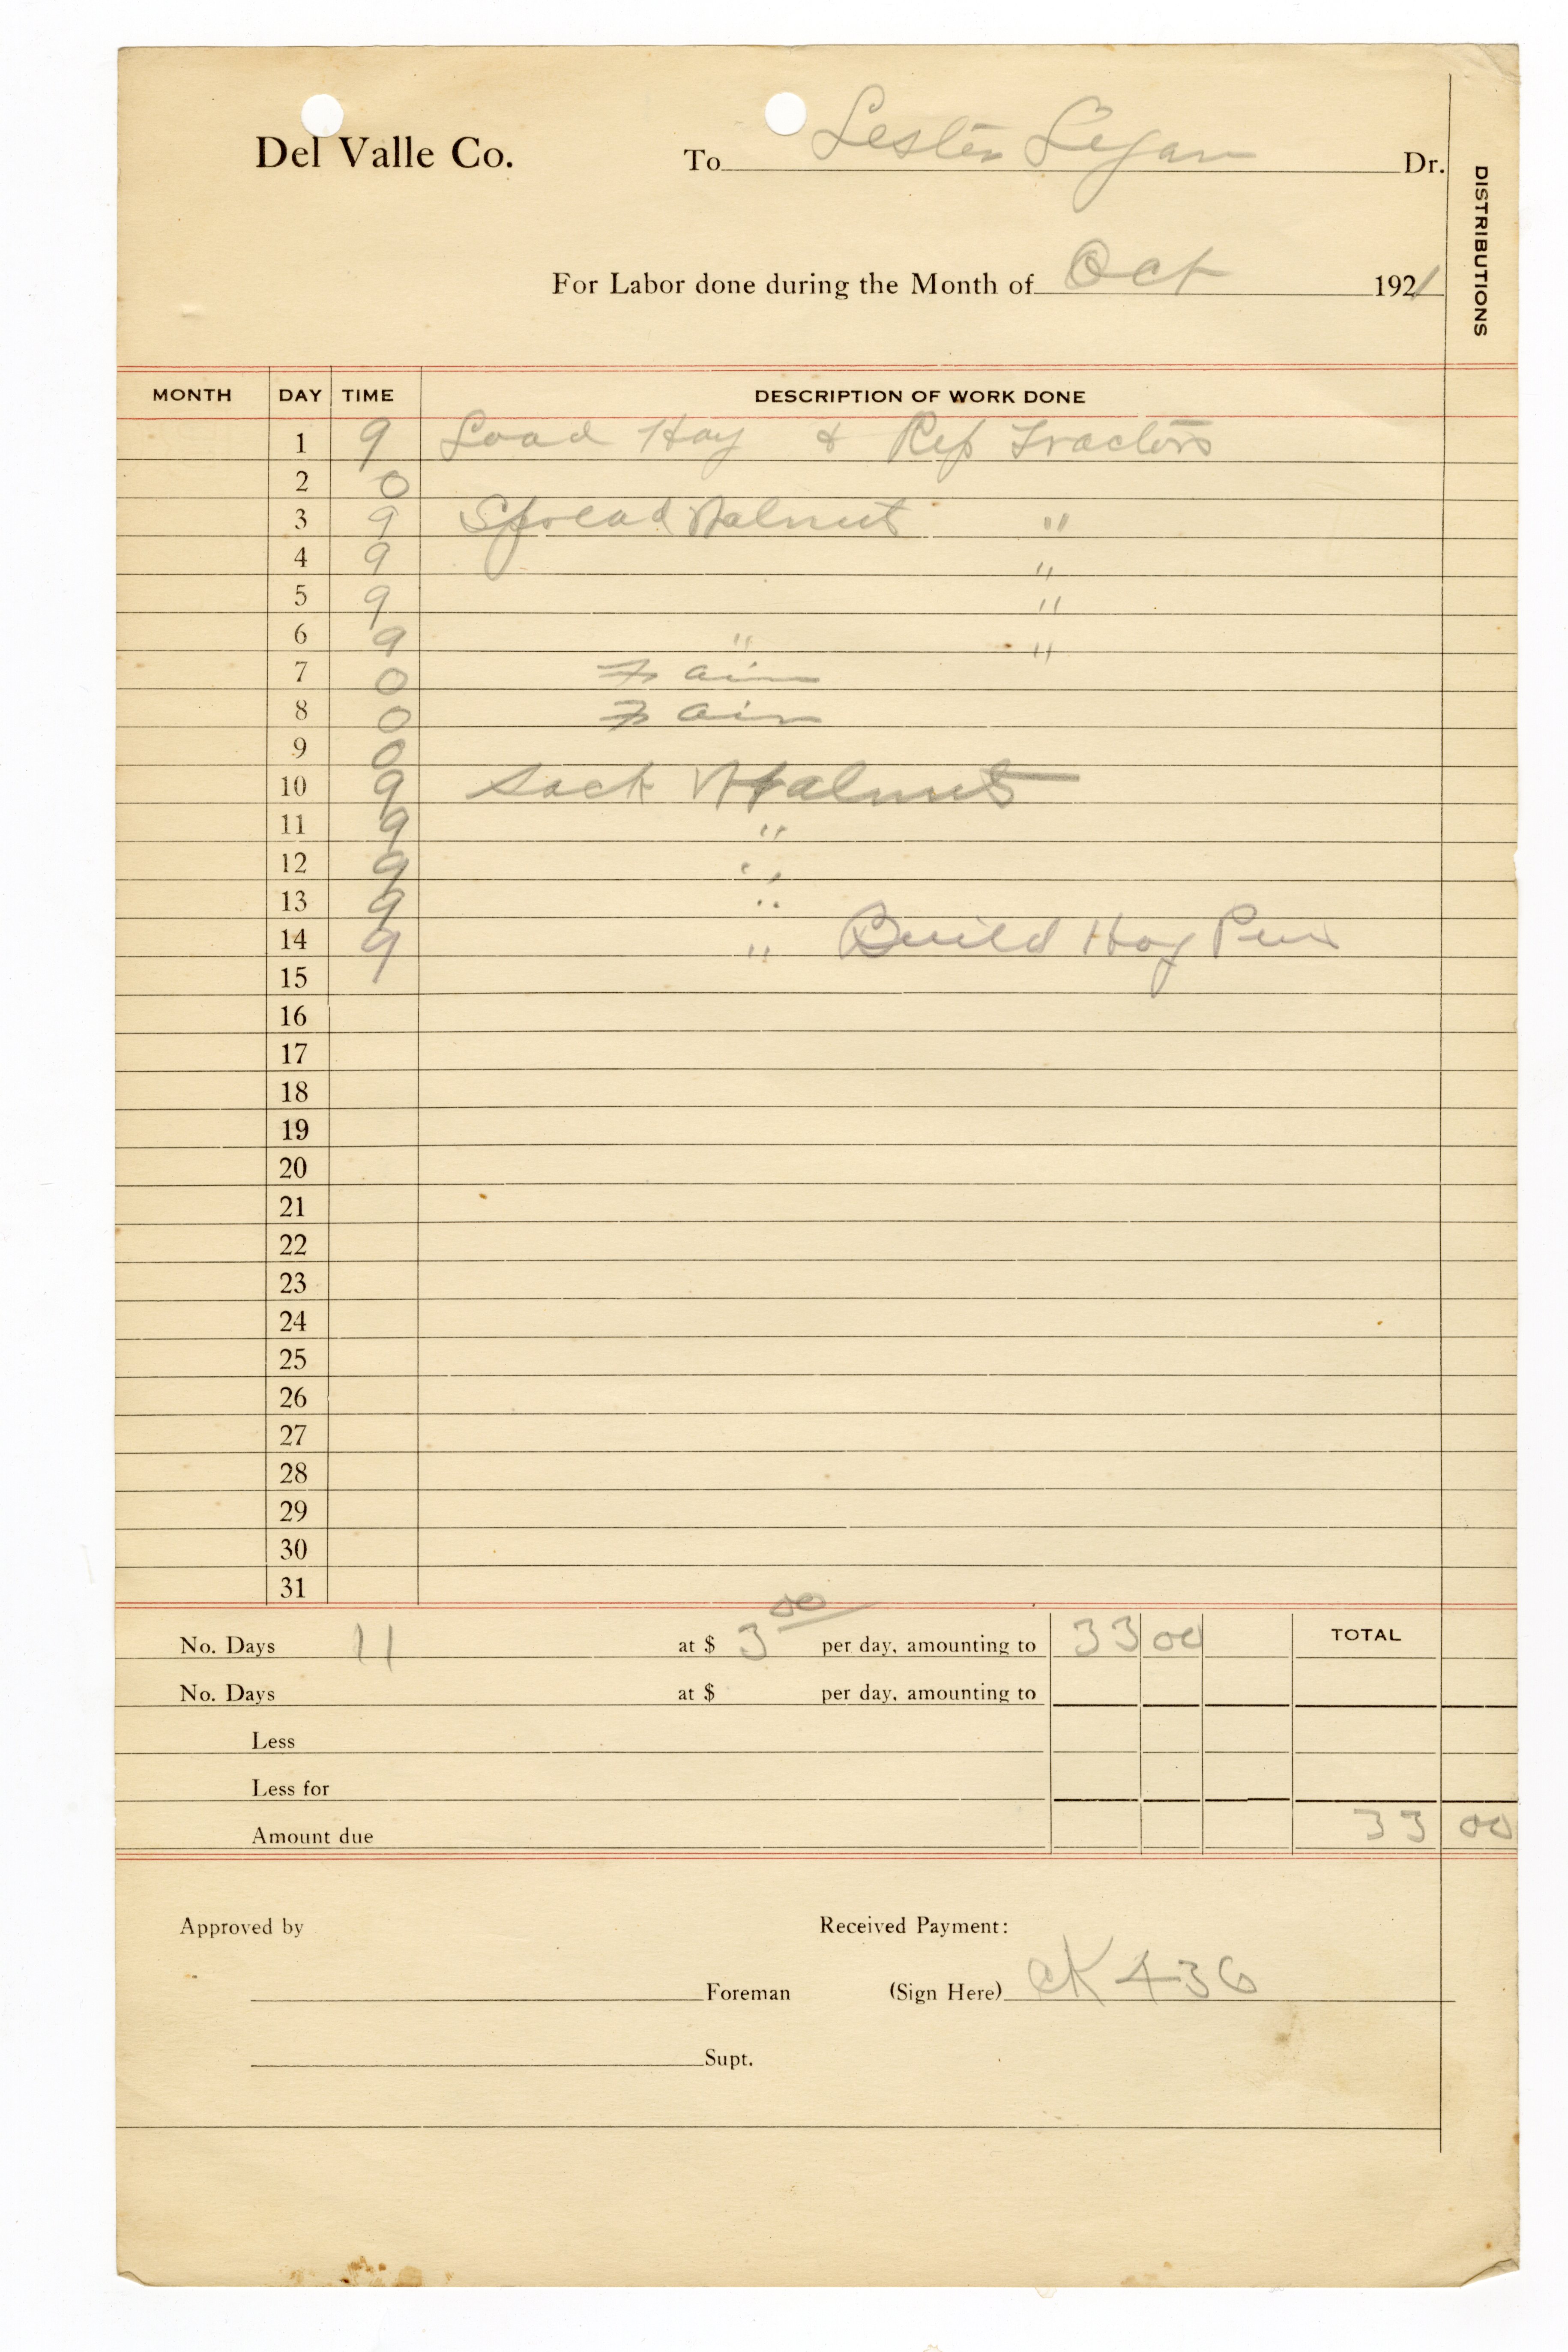 Del Valle Co. To Lester Dr.
DISTRIBUTIONS
For Labor done during the Month of Oct 1921
MONTH DAY TIME DESCRIPTION OF WORK DONE
1 9 Load Hay & Rep Tractors
2 0
3 9 Spread Walnut "
4 9 "
5 9 "
6 9 " "
7 0 Rain
8 0 Rain
9 0
10 9 Sack Walnuts
11 9 "
12 9 "
13 9 "
14 9 " Build Hog Pen
15
16
17
18
19
20
21
22
23
24
25
26
27
28
29
30
31
No. Days 11 at $ 3 00 per day, amounting to 33 00 TOTAL
No. Days at $ per day, amounting to
Less
Less for
Amount due 33 00
Approved by Received Payment:
Foreman (Sign Here) CK 436
Supt.